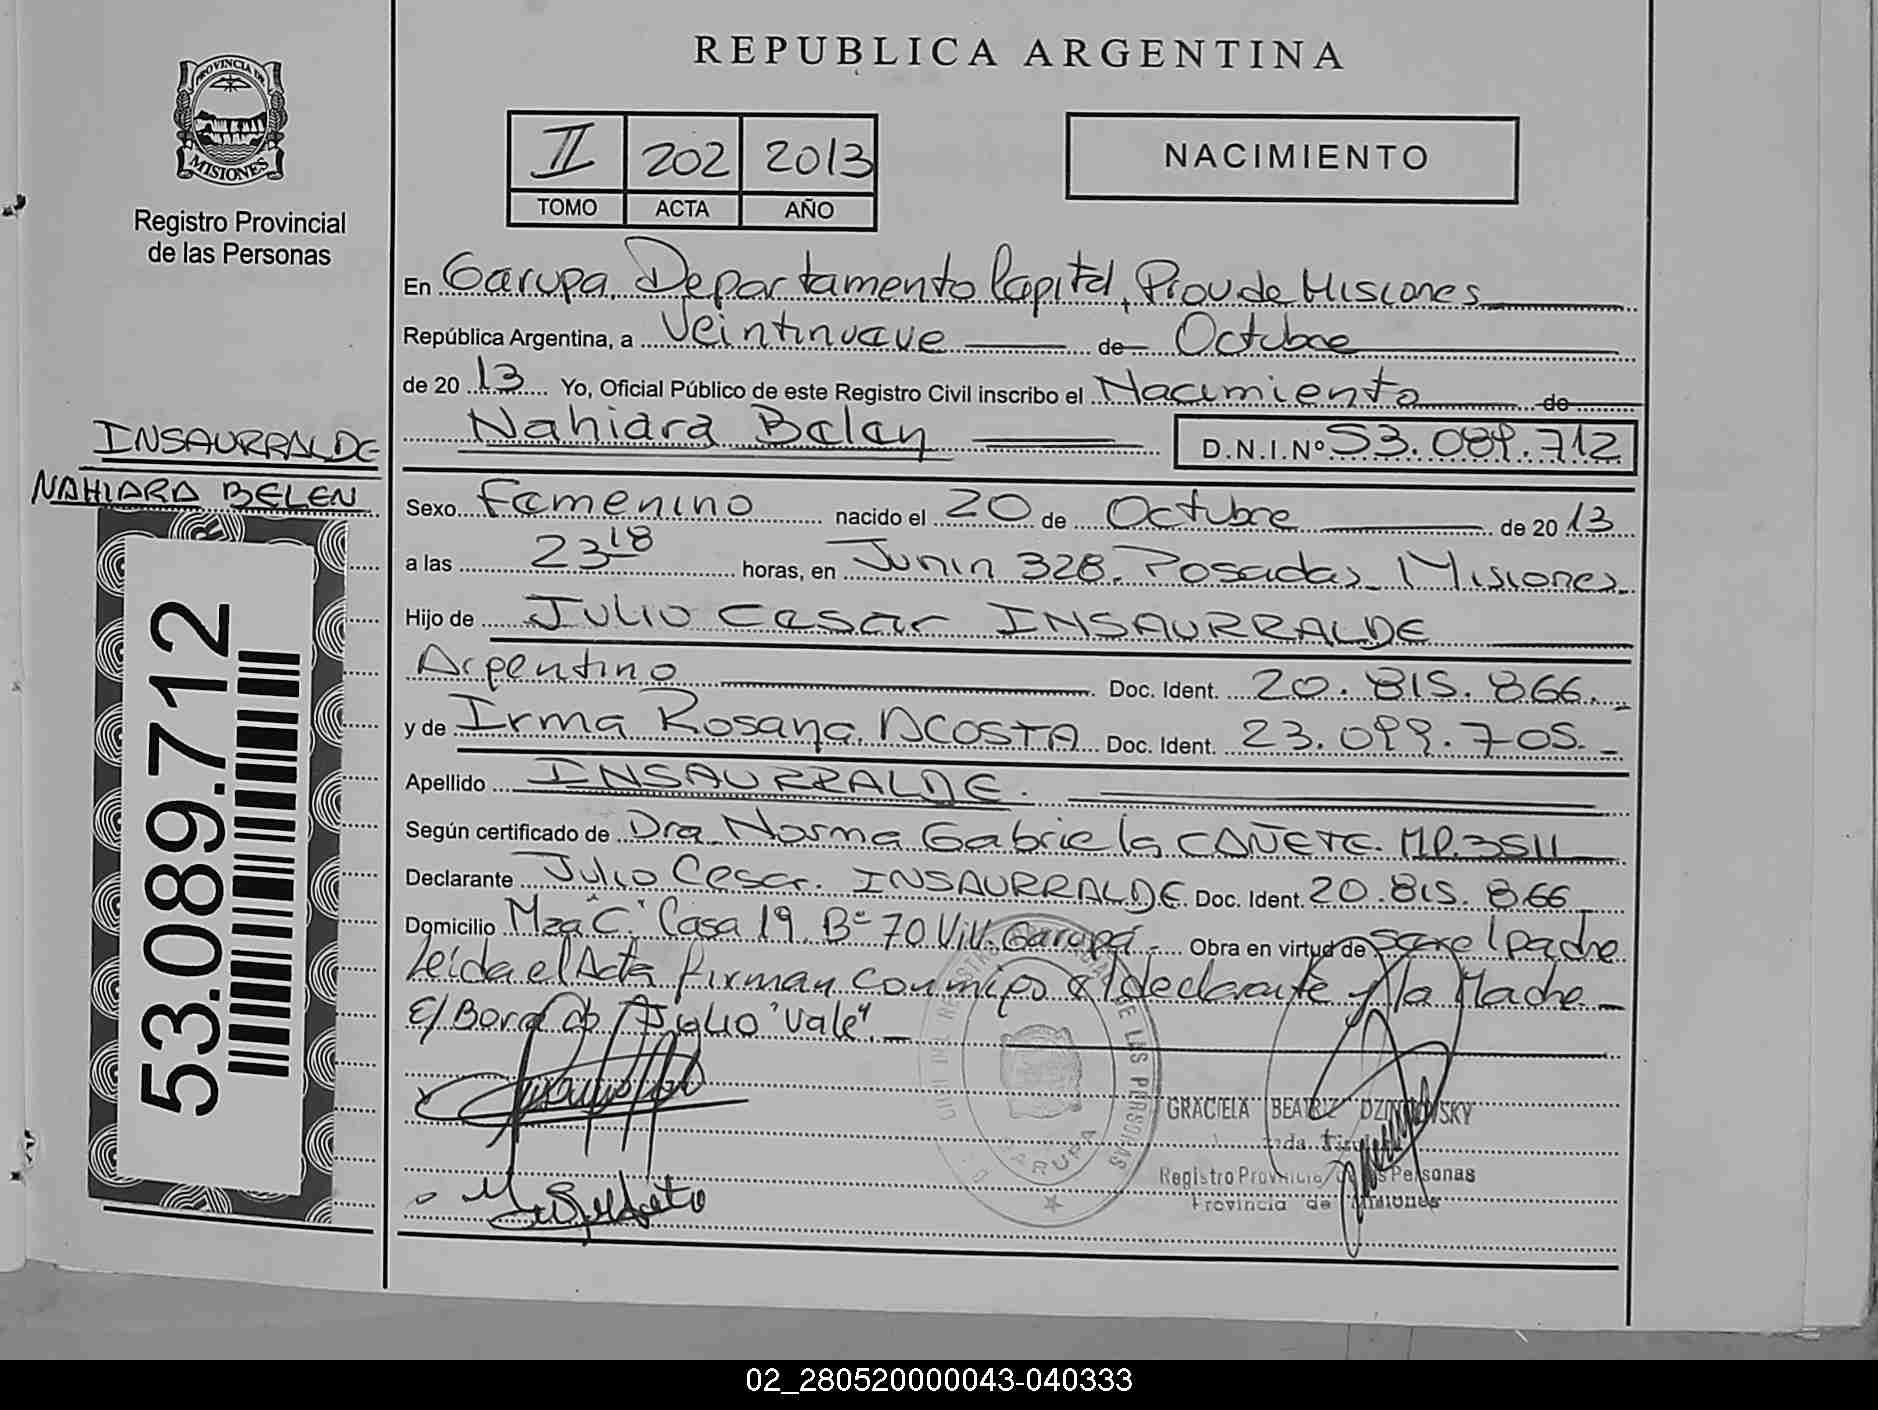 REPUBLICA ARGENTINA
PROVINCIA DE
MISIONES
Registro Provincial
de las Personas
II 202 2013
TOMO ACTA AÑO
NACIMIENTO
En Garupa, Departamento Capital, Prov de Misiones
República Argentina, a Veintinueve de Octubre
de 20 13 Yo, Oficial Público de este Registro Civil inscribo el Nacimiento de
Nahiara Belen D.N.I.Nº 53.089.712
INSAURRALDE
NAHIARA BELEN
53.089.712
Sexo Femenino nacido el 20 de Octubre de 20 13
a las 23 18 horas, en Junin 328. Posadas Misiones
Hijo de Julio Cesar INSAURRALDE
Argentino Doc. Ident. 20.815.866.
y de Irma Rosana ACOSTA Doc. Ident. 23.099.705.
Apellido INSAURRALDE.
Según certificado de Dra. Norma Gabriela CAÑETE. MP.3511
Declarante Julio Cesar. INSAURRALDE. Doc. Ident. 20.815.866
Domicilio Mza "C" Casa 19 Bº 70 Viv. Garupá Obra en virtud de ser el padre
Leida el Acta firman conmigo el declarante y la Madre
E/ Julio "Vale"
GARUPA
GRACIELA BEATRIZ
Registro Personas
Provincia de Misiones
02_280520000043-040333